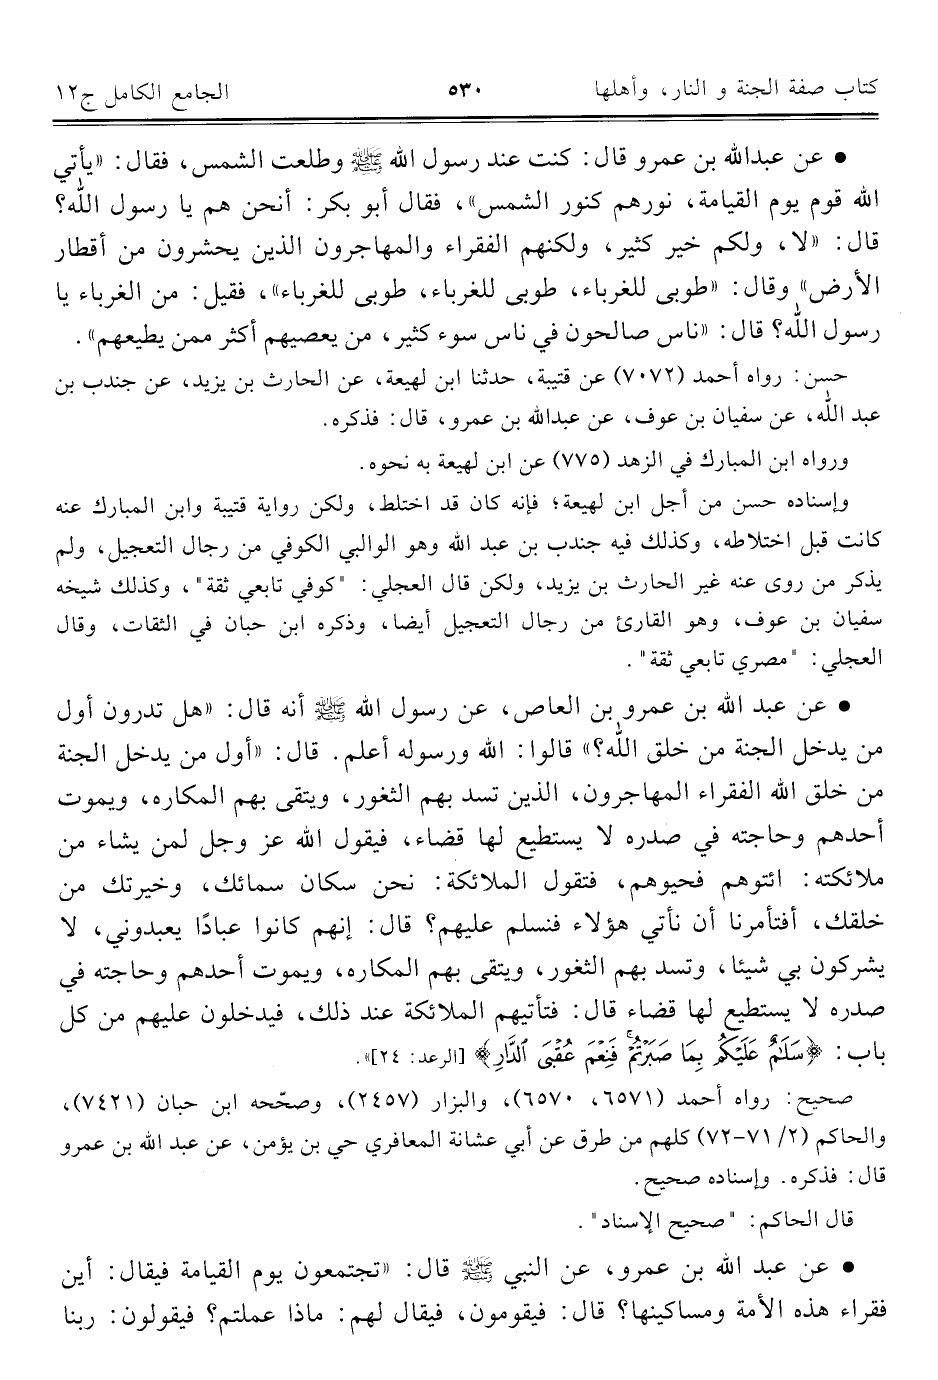 كتاب صفة الجنة و النار، وأهلها ٥٣٠ الجامع الكامل ج١٢
• عن عبدالله بن عمرو قال: كنت عند رسول الله ﷺ وطلعت الشمس، فقال: «يأتي
الله قوم يوم القيامة، نورهم كنور الشمس»، فقال أبو بكر: أنحن هم يا رسول الله؟
قال: «لا، ولكم خير كثير، ولكنهم الفقراء والمهاجرون الذين يحشرون من أقطار
الأرض» وقال: «طوبى للغرباء، طوبى للغرباء، طوبى للغرباء»، فقيل: من الغرباء يا
رسول الله؟ قال: «ناس صالحون في ناس سوء كثير، من يعصيهم أكثر ممن يطيعهم».
حسن: رواه أحمد (٧٠٧٢) عن قتيبة، حدثنا ابن لهيعة، عن الحارث بن يزيد، عن جندب بن
عبد الله، عن سفيان بن عوف، عن عبدالله بن عمرو، قال: فذكره.
ورواه ابن المبارك في الزهد (٧٧٥) عن ابن لهيعة به نحوه.
وإسناده حسن من أجل ابن لهيعة؛ فإنه كان قد اختلط، ولكن رواية قتيبة وابن المبارك عنه
كانت قبل اختلاطه، وكذلك فيه جندب بن عبد الله وهو الوالبي الكوفي من رجال التعجيل، ولم
يذكر من روى عنه غير الحارث بن يزيد، ولكن قال العجلي: "كوفي تابعي ثقة"، وكذلك شيخه
سفيان بن عوف، وهو القارئ من رجال التعجيل أيضا، وذكره ابن حبان في الثقات، وقال
العجلي: "مصري تابعي ثقة".
• عن عبد الله بن عمرو بن العاص، عن رسول الله ﷺ أنه قال: «هل تدرون أول
من يدخل الجنة من خلق الله؟» قالوا: الله ورسوله أعلم. قال: «أول من يدخل الجنة
من خلق الله الفقراء المهاجرون، الذين تسد بهم الثغور، ويتقى بهم المكاره، ويموت
أحدهم وحاجته في صدره لا يستطيع لها قضاء، فيقول الله عز وجل لمن يشاء من
ملائكته: ائتوهم فحيوهم، فتقول الملائكة: نحن سكان سمائك، وخيرتك من
خلقك، أفتأمرنا أن نأتي هؤلاء فنسلم عليهم؟ قال: إنهم كانوا عبادًا يعبدوني، لا
يشركون بي شيئا، وتسد بهم الثغور، ويتقى بهم المكاره، ويموت أحدهم وحاجته في
صدره لا يستطيع لها قضاء قال: فتأتيهم الملائكة عند ذلك، فيدخلون عليهم من كل
باب: ﴿سَلَٰمٌ عَلَيْكُم بِمَا صَبَرْتُمْ ۚ فَنِعْمَ عُقْبَى ٱلدَّارِ﴾ [الرعد: ٢٤]».
صحيح: رواه أحمد (٦٥٧١، ٦٥٧٠)، والبزار (٢٤٥٧)، وصحّحه ابن حبان (٧٤٢١)،
والحاكم (٢/ ٧١-٧٢) كلهم من طرق عن أبي عشانة المعافري حي بن يؤمن، عن عبد الله بن عمرو
قال: فذكره. وإسناده صحيح.
قال الحاكم: "صحيح الإسناد".
• عن عبد الله بن عمرو، عن النبي ﷺ قال: «تجتمعون يوم القيامة فيقال: أين
فقراء هذه الأمة ومساكينها؟ قال: فيقومون، فيقال لهم: ماذا عملتم؟ فيقولون: ربنا